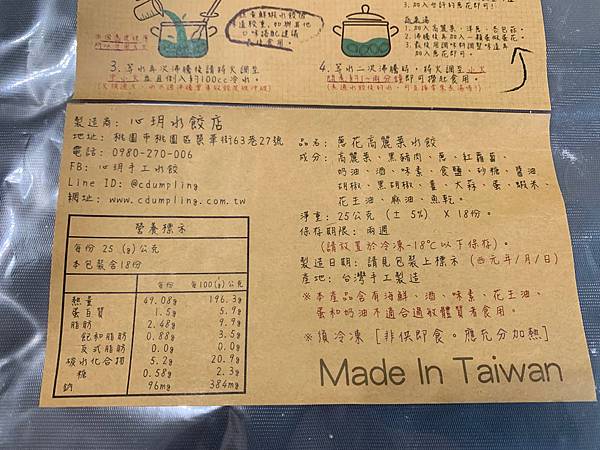 加入蔥花即可!
蔬菜湯:
1. 加入高麗菜、洋蔥、杏包菇。
2. 沸騰後再加入一顆蛋做蛋花。
3. 最後用調味料調整味道再
加入蔥花即可!
3. 等水再次沸騰後請將火調至
中小火並且倒入約100cc冷水。
4. 等水二次沸騰時,將火調至小火
悶煮約1~2兩分鐘即可撈起食用。
製造商: 心玥水餃店
地址: 桃園市桃園區裝華街63巷27號
電話: 0980-270-006
FB: 心玥手工水餃
Line ID: @cdumpling
網址: www.cdumpling.com.tw
營養標示
每份 25 (g)公克
本包裝含18份
每份 每100(g)公克
熱量 49.08g 196.3g
蛋白質 1.5g 5.9g
脂肪 2.48g 9.9g
飽和脂肪 0.88g 3.5g
反式脂肪 0.0g 0.0g
碳水化合物 5.2g 20.9g
糖 0.58g 2.3g
鈉 96mg 384mg
品名: 蔥花高麗菜水餃
成分: 高麗菜、黑豬肉、蔥、紅蘿蔔、
奶油、酒、味素、食鹽、砂糖、醬油
胡椒、黑胡椒、薑、大蒜、蛋、蝦米、
花生油、麻油、魚乾。
淨重: 25公克 (± 5%) X 18份。
保存期限: 兩週
(請放置於冷凍-18℃以下保存)。
製造日期: 請見包裝上標示 (西元年/月/日)
產地: 台灣手工製造
※本產品含有海鮮、酒、味素、花生油、
蛋和奶油不適合過敏體質者食用。
※須冷凍 [非供即食。應充分加熱]
Made In Taiwan